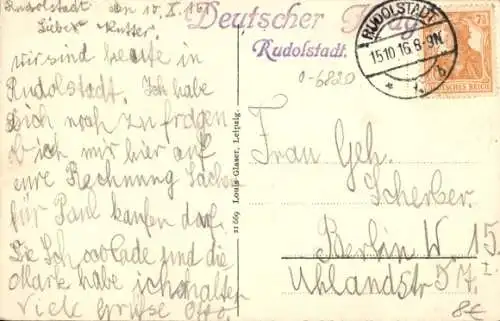 Rudolstadt den 15. X. 16.
Liebe Mutter.
wir sind heute in
Rudolstadt. Ich habe
Dich noch zu fragen
ob ich mir hier auf
eure Rechnung Sachen
für Paul kaufen darf.
Die Schocolade und die
Mark habe ich erhalten
Viele Grüße Otto.
21669 Louis Glaser, Leipzig.
Deutscher
Rudolstadt.
RUDOLSTADT
15.10.16.8-9N.
* b
7½
DEUTSCHES REICH
0-6820
Frau Geh.
Scherber.
Berlin W 15.
Uhlandstr.
I.
8€